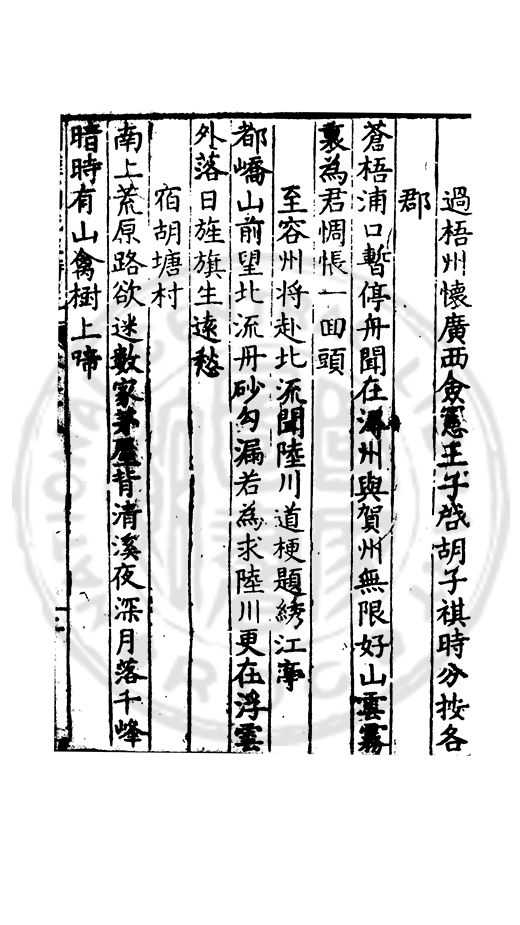 過梧州懷廣西僉憲王子啓胡子祺時分按各
郡
蒼梧浦口暫停舟聞在潯州與賀州無限好山雲霧
裏為君惆悵一回頭
至容州將赴北流聞陸川道梗題綉江亭
都嶠山前望北流丹砂勾漏若為求陸川更在浮雲
外落日旌旗生遠愁
宿胡塘村
南上荒原路欲迷數家茅屋背清溪夜深月落千峰
暗時有山禽樹上啼